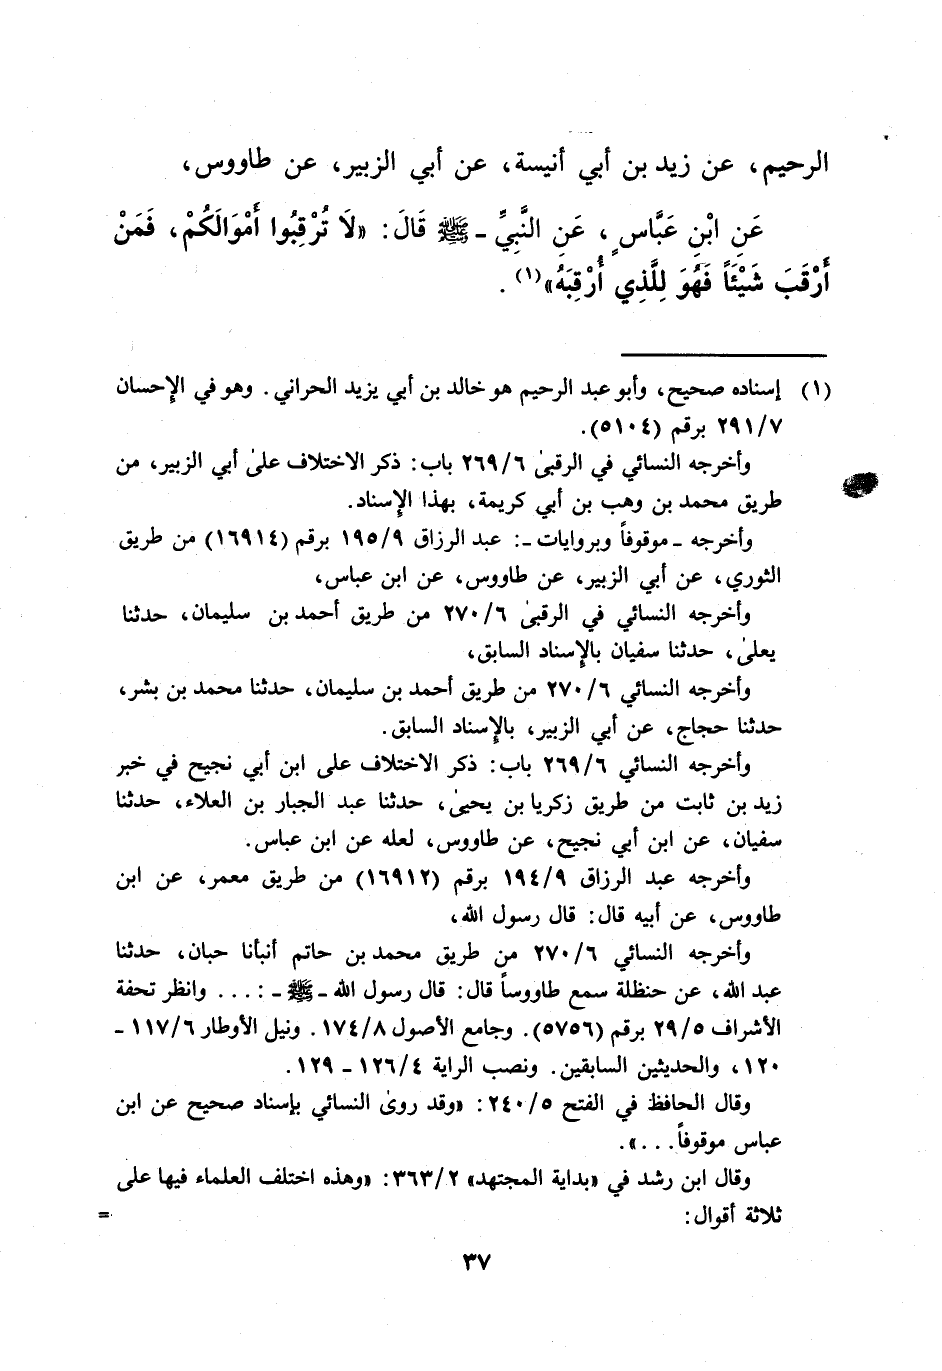 الرحيم، عن زيد بن أبي أنيسة، عن أبي الزبير، عن طاووس،
عَنِ ابْنِ عَبَّاسٍ، عَنِ النَّبِيِّ ـ ﷺ قَالَ: «لَا تُرْقِبُوا أَمْوَالَكُمْ، فَمَنْ
أَرْقَبَ شَيْئَاً فَهُوَ لِلَّذِي أُرْقِبَهُ»(١).
(١) إسناده صحيح، وأبو عبد الرحيم هو خالد بن أبي يزيد الحراني. وهو في الإحسان
٢٩١/٧ برقم (٥١٠٤).
وأخرجه النسائي في الرقبىٰ ٢٦٩/٦ باب: ذكر الاختلاف علىٰ أبي الزبير، من
طريق محمد بن وهب بن أبي كريمة، بهذا الإسناد.
وأخرجه ـ موقوفاً وبروايات ـ: عبد الرزاق ١٩٥/٩ برقم (١٦٩١٤) من طريق
الثوري، عن أبي الزبير، عن طاووس، عن ابن عباس،
وأخرجه النسائي في الرقبىٰ ٢٧٠/٦ من طريق أحمد بن سليمان، حدثنا
يعلىٰ، حدثنا سفيان بالإسناد السابق،
وأخرجه النسائي ٢٧٠/٦ من طريق أحمد بن سليمان، حدثنا محمد بن بشر،
حدثنا حجاج، عن أبي الزبير، بالإسناد السابق.
وأخرجه النسائي ٢٦٩/٦ باب: ذكر الاختلاف على ابن أبي نجيح في خبر
زيد بن ثابت من طريق زكريا بن يحيىٰ، حدثنا عبد الجبار بن العلاء، حدثنا
سفيان، عن ابن أبي نجيح، عن طاووس، لعله عن ابن عباس.
وأخرجه عبد الرزاق ١٩٤/٩ برقم (١٦٩١٢) من طريق معمر، عن ابن
طاووس، عن أبيه قال: قال رسول الله،
وأخرجه النسائي ٢٧٠/٦ من طريق محمد بن حاتم أنبأنا حبان، حدثنا
عبد الله، عن حنظلة سمع طاووساً قال: قال رسول الله ـ ﷺ ـ: ... وانظر تحفة
الأشراف ٢٩/٥ برقم (٥٧٥٦). وجامع الأصول ١٧٤/٨. ونيل الأوطار ١١٧/٦ ـ
١٢٠، والحديثين السابقين. ونصب الراية ١٢٦/٤ ـ ١٢٩.
وقال الحافظ في الفتح ٢٤٠/٥: «وقد روىٰ النسائي بإسناد صحيح عن ابن
عباس موقوفاً...».
وقال ابن رشد في «بداية المجتهد» ٣٦٣/٢: «وهذه اختلف العلماء فيها على
ثلاثة أقوال: =
٣٧